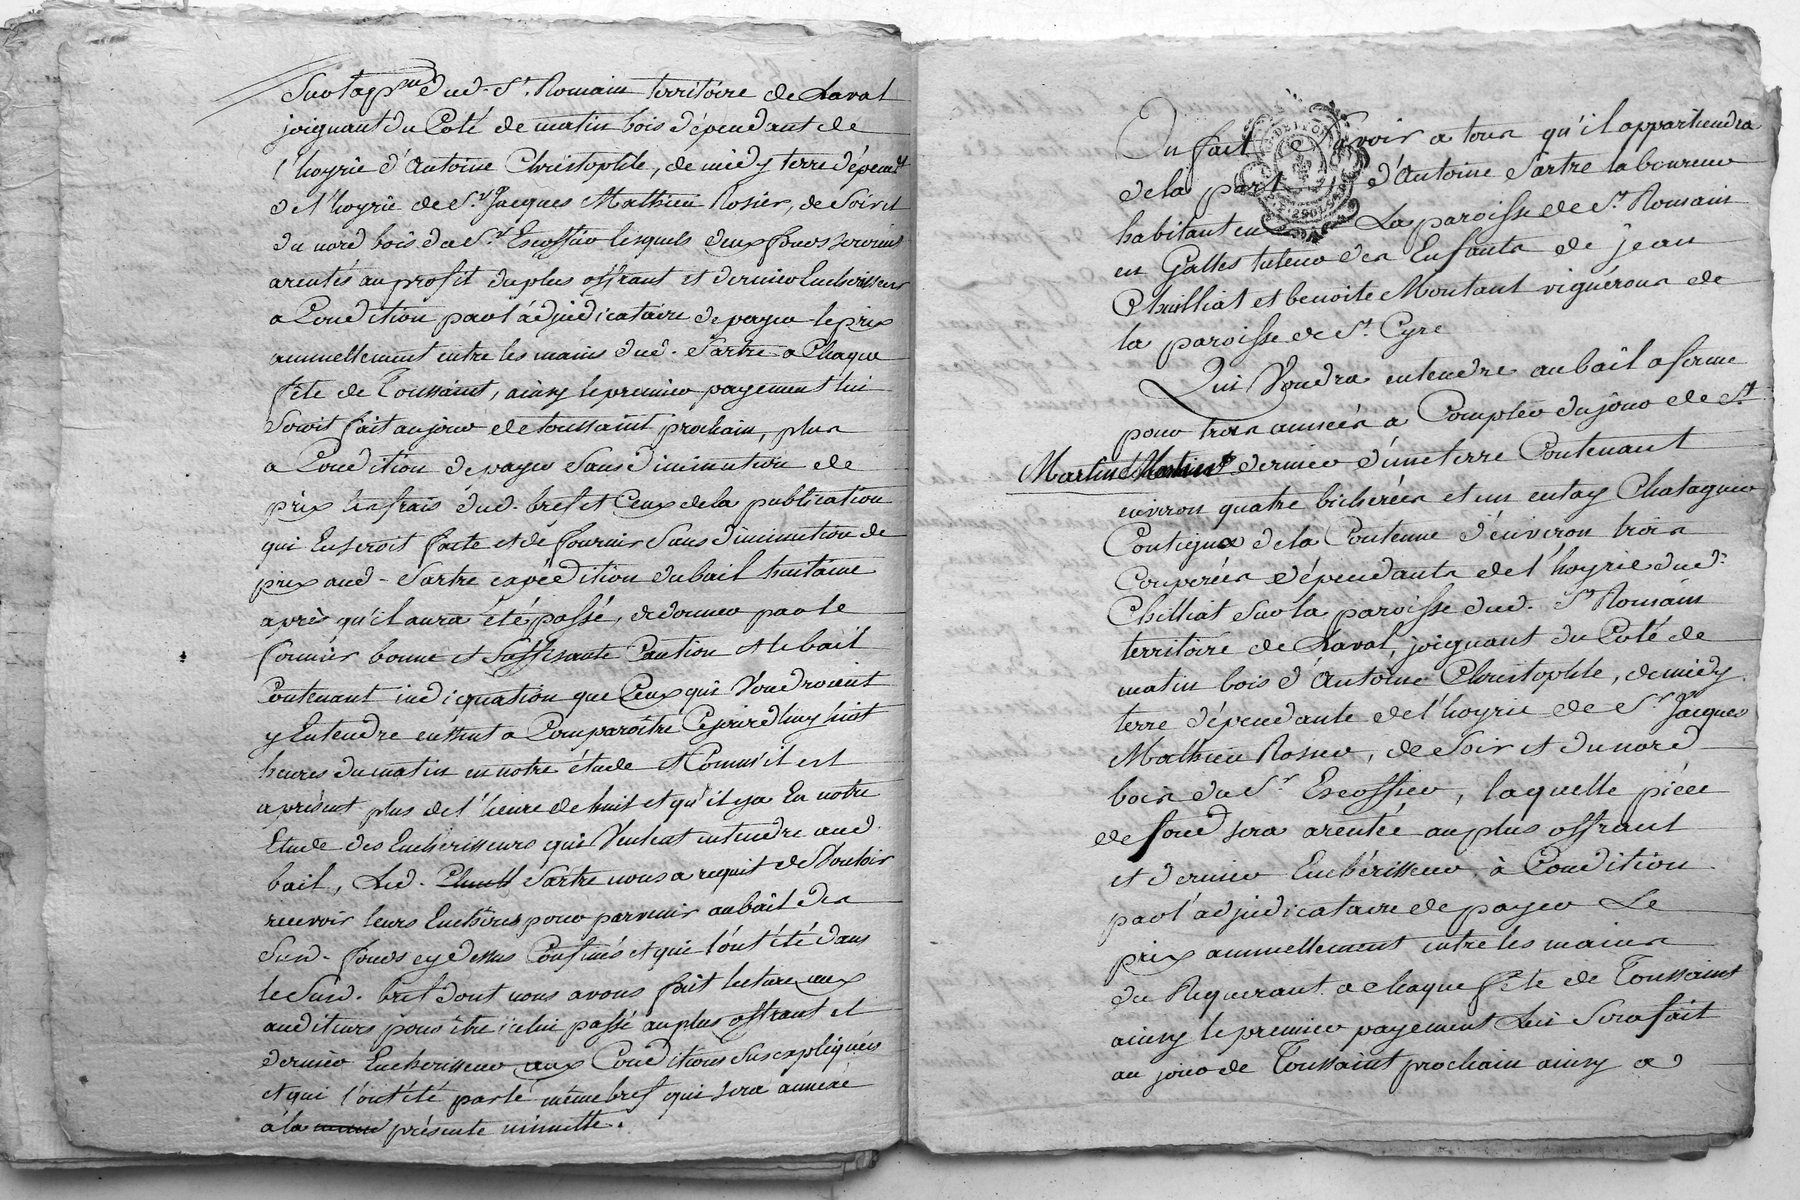 Sur la p.sse dud. St. Romain territoire de Laval
joignant du Coté de matin bois dépendant de
l'hoyrie d'Antoine Christophle, de midy terre dépend.t
de l'hoyrie de Sr. Jacques Mathieu Rosier, de Soir et
du nord bois du Sr. Escoffier lesquels deux fonds seroient
arentés au profit du plus offrant et dernier Encherisseur
a Condition par l'adjudicataire de payer le prix
annuellement entre les mains dud. Sartre a Chaque
fête de Toussaint, ainsy le premier payement lui
Seroit fait au jour de toussaint prochain, plus
a Condition de payer Sans diminution de
prix les frais dud. bref et Ceux de la publication
qui En seroit faite et de fournir Sans diminution de
prix aud. Sartre expédition du bail huitaine
après qu'il aura été passé, de donner par le
fermier bonne et Suffisante Caution et le bail
Contenant indiquation que Ceux qui Voudroient
y Entendre eussent a Comparoitre Cejourdhuy huit
heures du matin en notre étude et Comm'il est
a present plus de l'heure de huit et qu'il y a En notre
Etude des Encherisseurs qui Veulent entendre aud.
bail, Led. Sartre nous a requit de Vouloir
recevoir leurs Enchères pour parvenir au bail des
Susd. fonds cy dessus Confinés et qui l'ont été dans
le Susd. bref dont nous avons fait lecture aux
auditeurs pour être icelui passé au plus offrant et
dernier Encherisseur aux Conditions Sus expliquées
et qui l'ont été par le même bref qui sera annexé
à la présente minutte.
On fait Savoir a tous qu'il appartiendra
DE LYON
2. S. 290
de la part d'Antoine Sartre laboureur
habitant en La paroisse de St. Romain
en Galles tuteur des Enfants de Jean
Chilliat et benoite Montant vignérons de
la paroisse de St. Cyre
Qui Voudra entendre au bail a ferme
pour trois années a Compter du jour de St.
Martin dernier d'une terre Contenant
environ quatre bicherées et un entay Chatagner
Contigue de la Contenue d'environ trois
Couperées dépendants de l'hoyrie dud.
Chilliat Sur la paroisse dud. St. Romain
territoire de Laval, joignant du Coté de
matin bois d'Antoine Christophle, de midy
terre dépendante de l'hoyrie de Sr. Jacques
Mathieu Rosier, de Soir et du nord
bois du Sr. Escoffier, laquelle piéce
de fond sera arentée au plus offrant
et dernier Enchérisseur, à Condition
par l'adjudicataire de payer Le
prix annuellement entre les mains
du Requerant a chaque fête de Toussaint
ainsy le premier payement Lui Sera fait
au jour de Toussaint prochain ainsy a